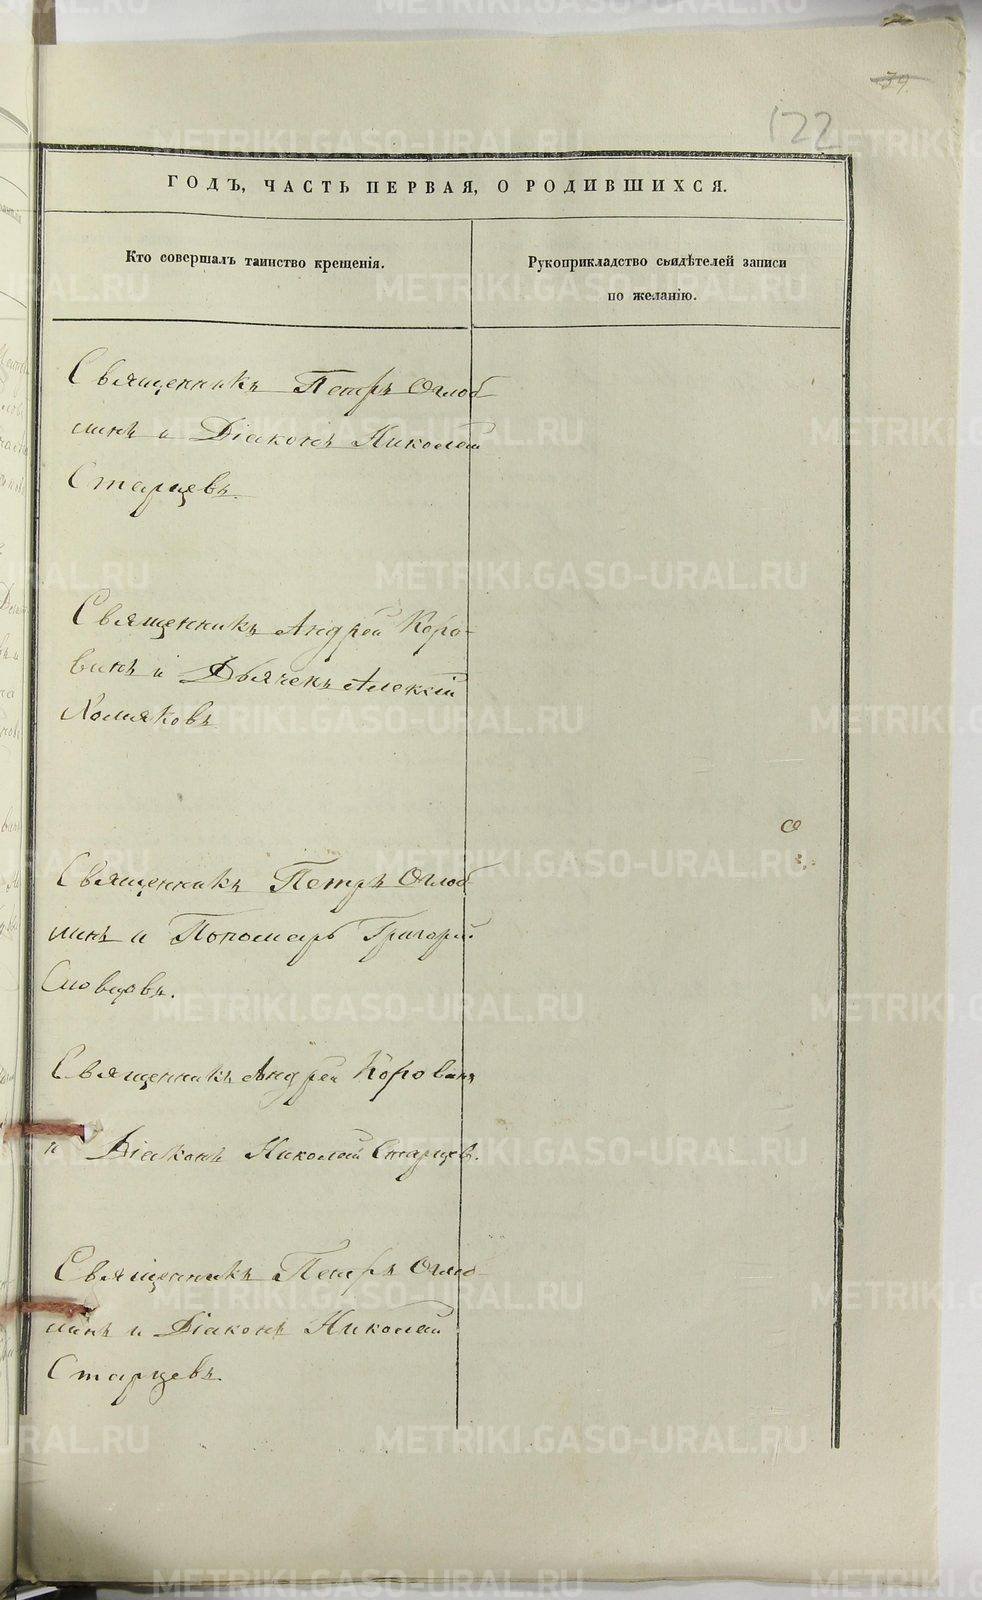 122
ГОДЪ, ЧАСТЬ ПЕРВАЯ, О РОДИВШИХСЯ.
Кто совершалъ таинство крещенія.
Рукоприкладство свидѣтелей записи
по желанію.
Священникъ Петръ Оглоб
линъ и Діаконъ Николай
Старцевъ.
Священникъ Андрей Коро-
винъ и Дьячекъ Алексій
Хомяковъ
Священникъ Петръ Оглоб
линъ и Пономарь Григорій
Словцовъ.
Священникъ Андрей Коровинъ
и Діаконъ Николай Старцев.
Священникъ Петръ Огло-
линъ и Діаконъ Николай
Старцевъ.
METRIKI.GASO-URAL.RU